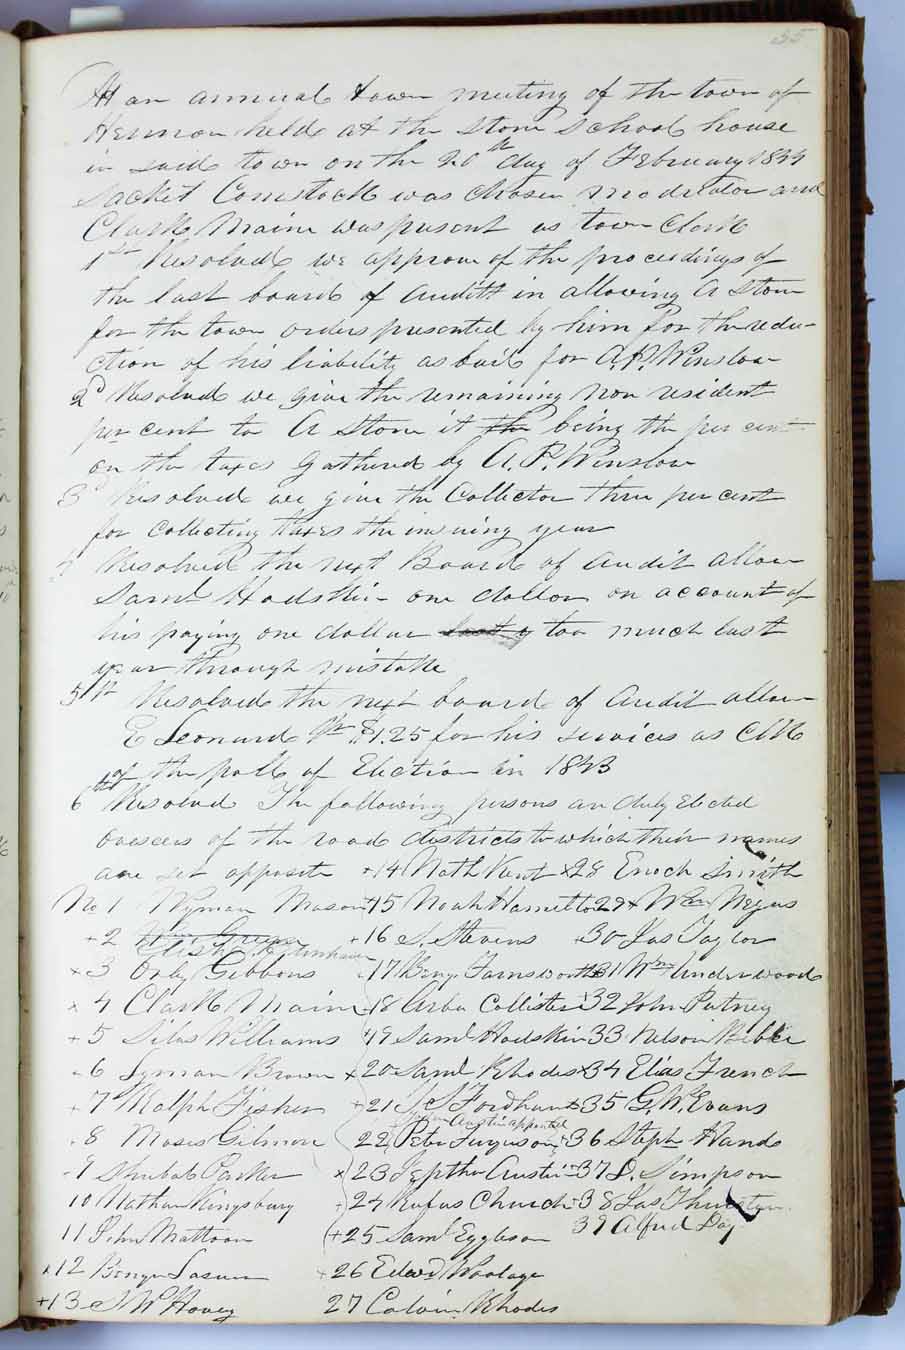 35
At an annual town meeting of the town of
Hermon held at the stone school house
in said town on the 20th day of February 1844
Sacket Comstock was chosen moderator and
Clark Maine was present as town Clerk
1st Resolved we approve of the proceedings of
the last board of audit in allowing A Stone
for the town orders presented by him for the redu-
ction of his liability as bail for A.P. Winslow
2d Resolved we give the remaining non resident
per cent to A Stone it the being the per cent
on the taxes gathered by A. P. Winslow
3d Resolved we give the Collector three per cent
for collecting taxes the insuing year
Resolved the next Board of audit allow
Saml Hodskin one dollar on account of
his paying one dollar too much last
year through mistake
5th Resolved the next board of Audit allow
E Leonard Jr $1.25 for his services as Clk
of the poll of Election in 1843
6th Resolved The following persons are duly Elected
overseers of the road districts to which their names
are set opposite +14 Nath Kent ×28 Enoch Smith
No 1 Wyman Mason +15 Noah Hamelton 29 × Wm Negus
+2 Wm Green +16 S. Stevens +30 Jas Taylor
Elisha
×3 Orly Gibbons 17 Benj Farnsworth 31 Wm Underwood
× 4 Clark Maine 18 Arba Collister 32 John Putney
+5 Silas Williams 19 Saml Hodskin 33 Nelson
6 Lyman Brown ×20 Saml Rhodes ×34 Elias French
+7 Ralph Fisher +21 J S Fordham 35 G. W. Evans
Austin appointed
8 Moses Gilmore 22 Peter Furguson 36 Steph Hands
9 Shubal Parker ×23 Jeptha Austin 37 D. Simpson
10 Nathan Kingsbury 24 Rufus Church 38 Jas Thurston
11 John Mattoon +25 Saml Eggleson 39 Alfred Day
×12 Benjn +26 Edwd Woolage
+13 J W Hovey 27 Calvin Rhodes